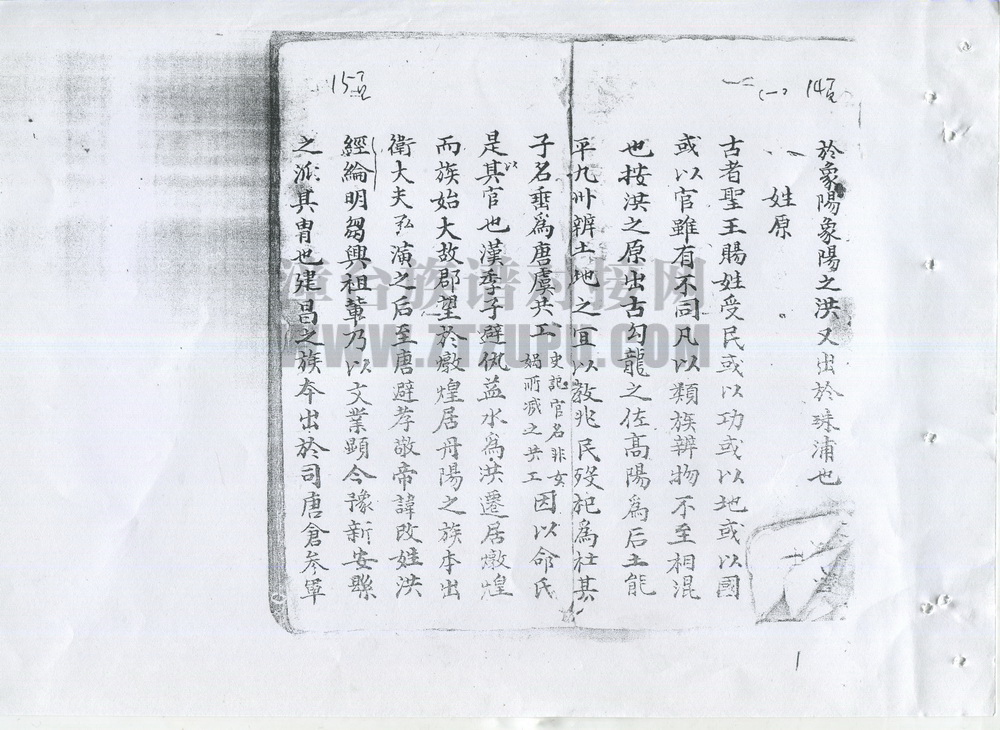 14頁
(一)
於象陽象陽之洪又出於珠浦也
姓原
古者聖王賜姓受民或以功或以地或以國
或以官雖有不同凡以類族辨物不至相混
也按洪之原出古勾龍之佐高陽為后土能
平九州辨土地之宜以教兆民歿祀為社其
子名垂為唐虞共工史記官名非女媧所滅之共工因以命氏
是以其官也漢季子避仇益水為洪遷居燉煌
而族始大故郡望於燉煌居丹陽之族本出
衛大夫弘演之后至唐避孝敬帝諱改姓洪
經綸明芻興祖輩乃以文業顯今豫新安縣
之派其胄也建昌之族本出於司唐倉參軍
15頁
1
漳台族谱对接网
WWW.ZTZUPU.COM